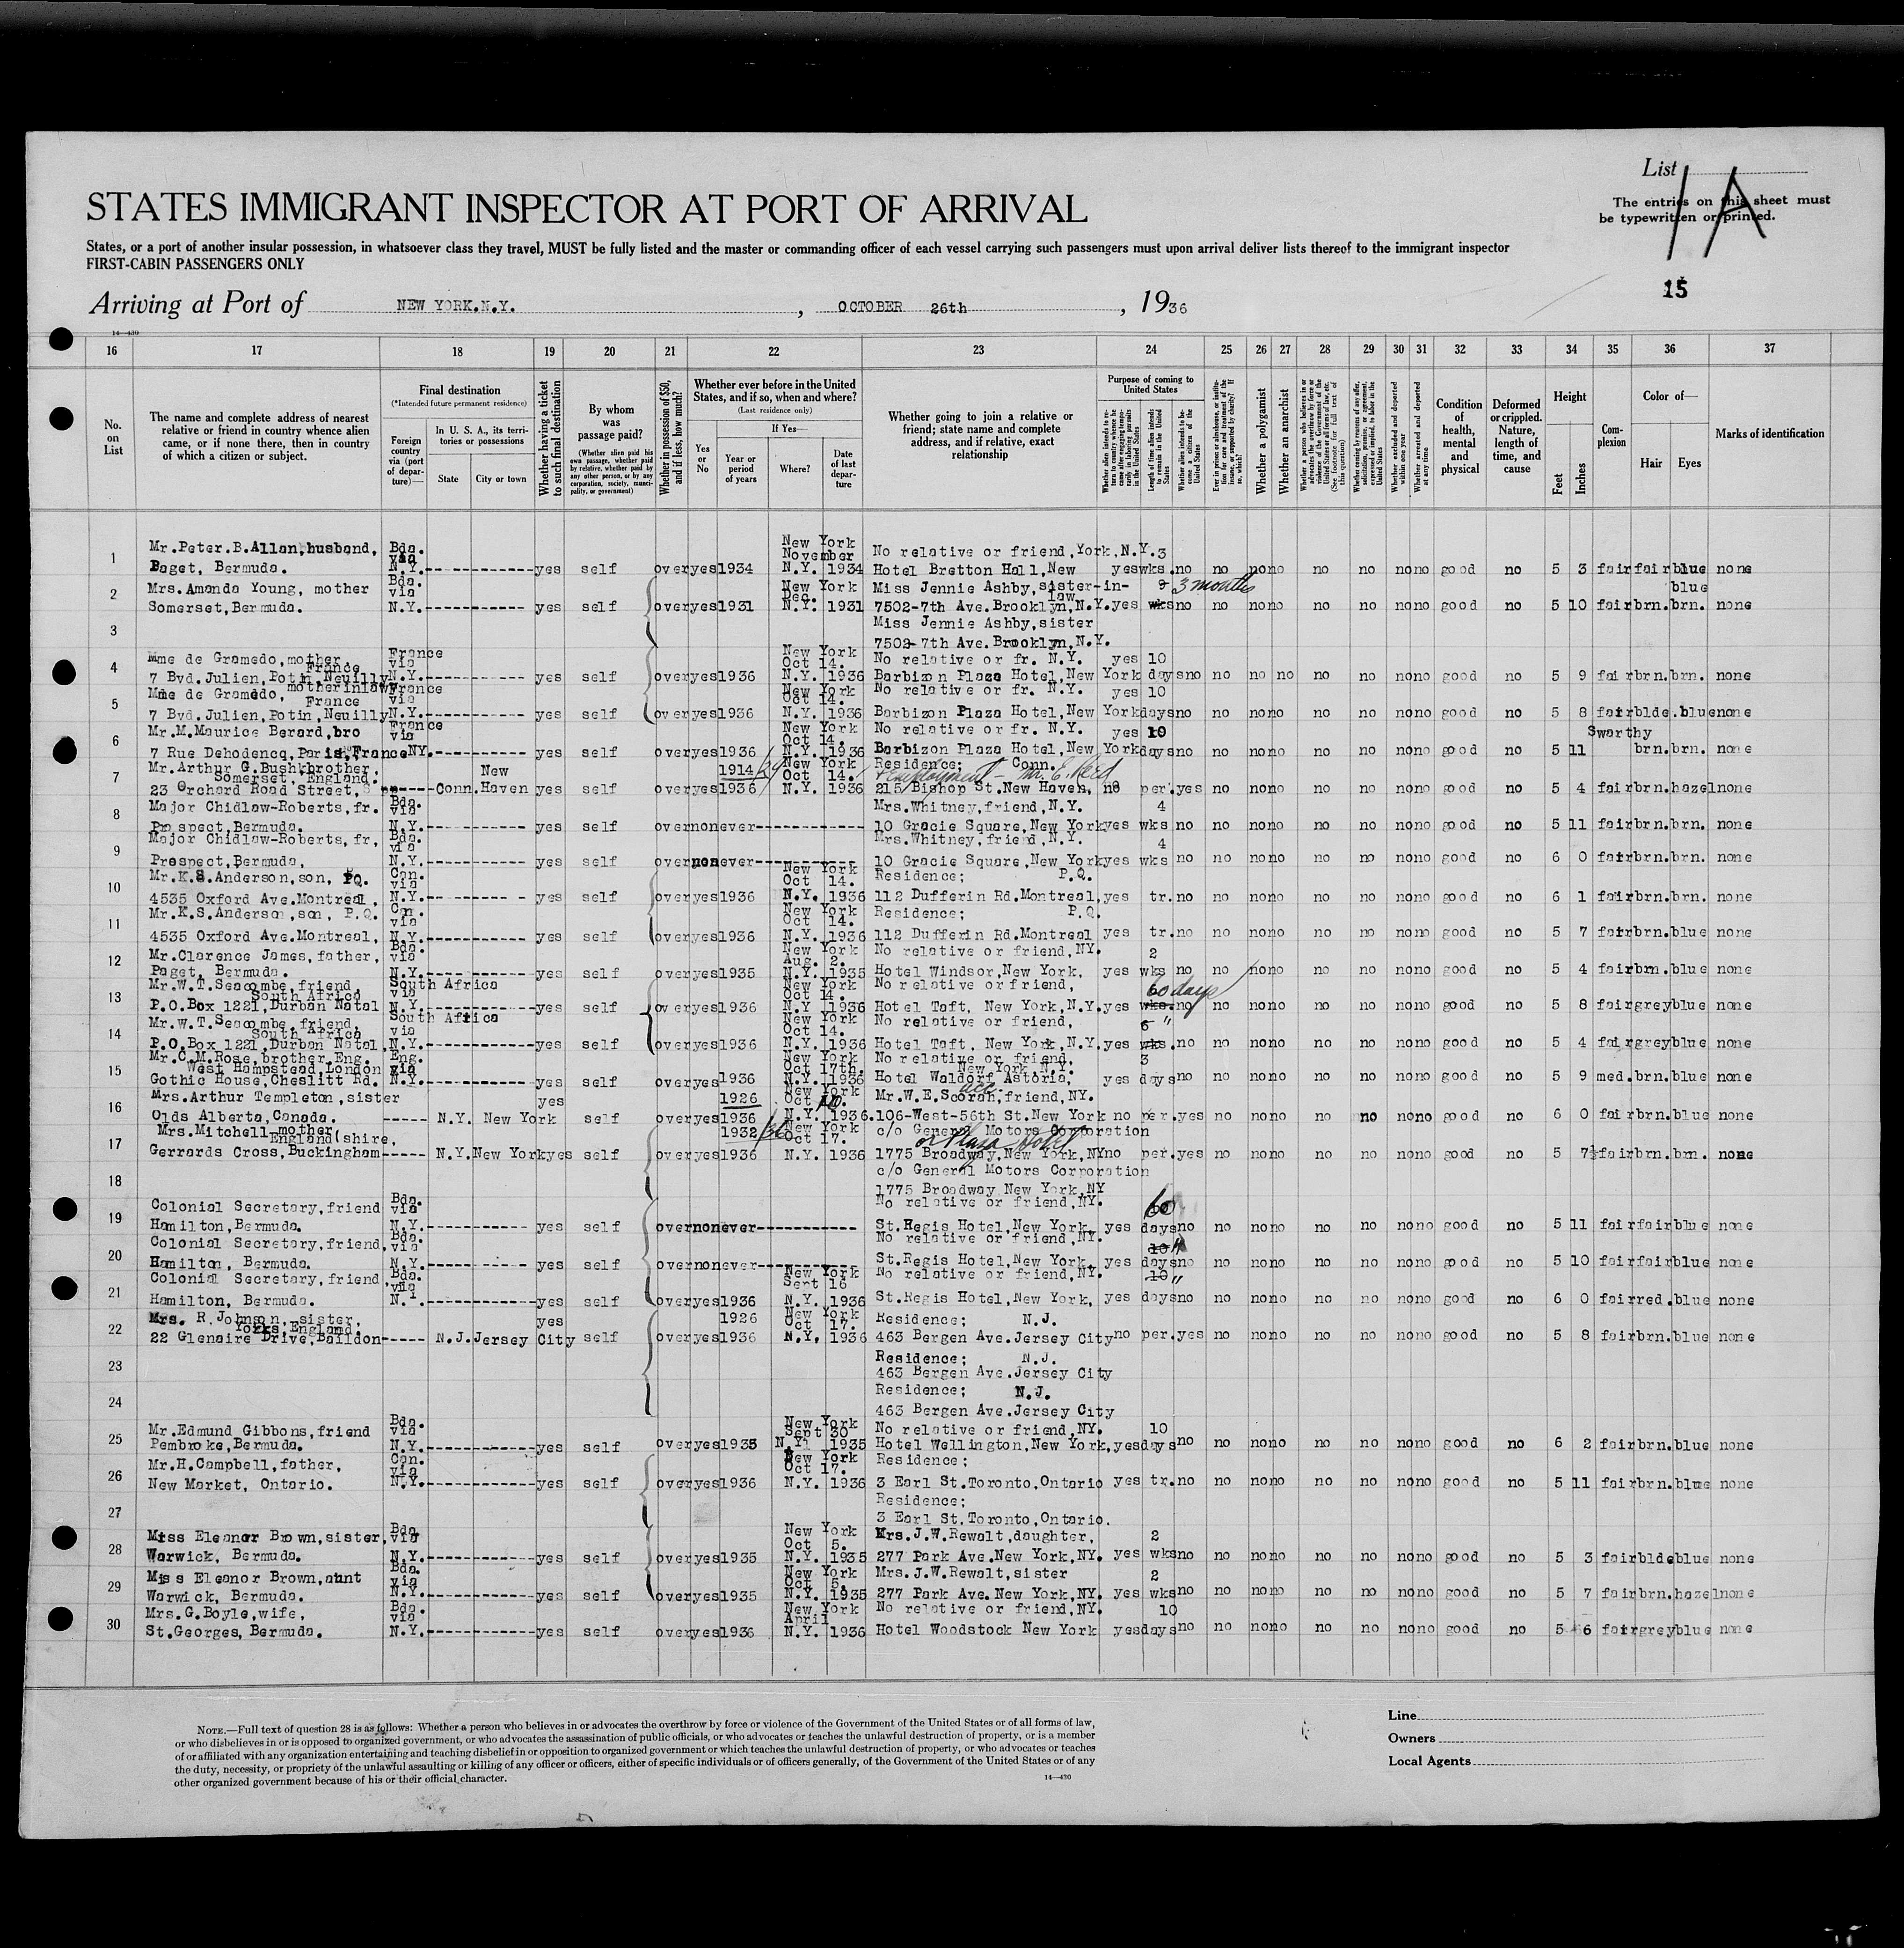 List
1A
The entries on this sheet must
be typewritten or printed.
15
STATES IMMIGRANT INSPECTOR AT PORT OF ARRIVAL
States, or a port of another insular possession, in whatsoever class they travel, MUST be fully listed and the master or commanding officer of each vessel carrying such passengers must upon arrival deliver lists thereof to the immigrant inspector
FIRST-CABIN PASSENGERS ONLY
Arriving at Port of NEW YORK.N.Y. , OCTOBER 26th , 1936
14—430
16 17 18 19 20 21 22 23 24 25 26 27 28 29 30 31 32 33 34 35 36 37
No. on List
The name and complete address of nearest relative or friend in country whence alien came, or if none there, then in country of which a citizen or subject.
Final destination
(*Intended future permanent residence)
Foreign country via (port of departure)—
In U. S. A., its territories or possessions
State
City or town
Whether having a ticket to such final destination
By whom was passage paid?
(Whether alien paid his own passage, whether paid by relative, whether paid by any other person, or by any corporation, society, municipality, or government)
Whether in possession of $50, and if less, how much?
Whether ever before in the United States, and if so, when and where?
(Last residence only)
Yes or No
If Yes—
Year or period of years
Where?
Date of last departure
Whether going to join a relative or friend; state name and complete address, and if relative, exact relationship
Purpose of coming to United States
Length of time alien intends to remain in the United States
Whether alien intends to become a citizen of the United States
Whether a polygamist
Whether an anarchist
Whether excluded and deported within one year
Whether arrested and deported at any time
Condition of health, mental and physical
Deformed or crippled. Nature, length of time, and cause
Height
Feet
Inches
Complexion
Color of—
Hair
Eyes
Marks of identification
1 Mr.Peter.B.Allan,husband, Bda. via New York November No relative or friend,York,N.Y. 3
Paget, Bermuda. N.Y. yes self over yes 1934 N.Y. 1934 Hotel Bretton Hall,New yes wks. no no no no no no no no good no 5 3 fair fair blue none
2 Mrs.Amanda Young, mother Bda. via New York Dec. Miss Jennie Ashby,sister-in-law 3 months blue
Somerset,Bermuda. N.Y. yes self over yes 1931 N.Y. 1931 7502-7th Ave.Brooklyn,N.Y. yes wks no no no no no no no no good no 5 10 fair brn. brn. none
3 Miss Jennie Ashby,sister
7502-7th Ave.Brooklyn,N.Y.
4 Mme de Gramedo,mother France France via New York Oct 14. No relative or fr. N.Y. yes 10
7 Bvd.Julien,Potin,Neuilly N.Y. yes self over yes 1936 N.Y. 1936 Barbizon Plaza Hotel,New York days no no no no no no no no good no 5 9 fair brn. brn. none
5 Mme de Gramedo, motherinlaw France France via New York Oct 14. No relative or fr. N.Y. yes 10
7 Bvd.Julien,Potin,Neuilly N.Y. yes self over yes 1936 N.Y. 1936 Barbizon Plaza Hotel,New York days no no no no no no no no good no 5 8 fair blde. blue none
6 Mr.M.Maurice Berard,bro France via New York Oct 14. No relative or fr. N.Y. yes 10 Swarthy
7 Rue Dehodencq,Paris,France NY. yes self over yes 1936 N.Y. 1936 Barbizon Plaza Hotel,New York days no no no no no no no no good no 5 11 brn. brn. none
7 Mr.Arthur G.Bush,brother, Somerset, England. New 1914/24 New York Oct 14. Residence; Conn. + employment - Mr. E.
23 Orchard Road Street, Conn. Haven yes self over yes 1936 N.Y. 1936 215 Bishop St.New Haven, no per. yes no no no no no no no good no 5 4 fair brn. hazel none
8 Major Chidlaw-Roberts,fr. Bda. via Mrs.Whitney,friend,N.Y. 4
Prospect,Bermuda. N.Y. yes self over no never 10 Gracie Square,New York yes wks no no no no no no no no good no 5 11 fair brn. brn. none
9 Major Chidlaw-Roberts,fr, Bda. via Mrs.Whitney,friend,N.Y. 4
Prospect,Bermuda, N.Y. yes self over no never 10 Gracie Square,New York yes wks no no no no no no no no good no 6 0 fair brn. brn. none
10 Mr.K.S.Anderson,son, PQ. Can. via New York Oct 14. Residence; P.Q.
4535 Oxford Ave.Montreal, N.Y. yes self over yes 1936 N.Y. 1936 112 Dufferin Rd.Montreal, yes tr. no no no no no no no no good no 6 1 fair brn. brn. none
11 Mr.K.S.Anderson,son, P.Q. Can. via New York Oct 14. Residence; P.Q.
4535 Oxford Ave.Montreal, N.Y. yes self over yes 1936 N.Y. 1936 112 Dufferin Rd.Montreal yes tr. no no no no no no no no good no 5 7 fair brn. blue none
12 Mr.Clarence James,father, Bda. via New York Aug. 2. No relative or friend,NY. 2
Paget, Bermuda. N.Y. yes self over yes 1935 N.Y. 1935 Hotel Windsor,New York, yes wks no no no no no no no no good no 5 4 fair brn. blue none
13 Mr.W.T.Seacombe,friend, South Africa South Africa via New York Oct 14. No relative or friend, 60 days
P.O.Box 1221,Durban Natal N.Y. yes self over yes 1936 N.Y 1936 Hotel Taft, New York,N.Y. yes wks. no no no no no no no no good no 5 8 fair grey blue none
14 Mr.W.T.Seacombe,friend, South Africa South Africa via New York Oct 14. No relative or friend, 6 "
P.O.Box 1221,Durban Natal, N.Y. yes self over yes 1936 N.Y. 1936 Hotel Taft, New York,N.Y. yes wks. no no no no no no no no good no 5 4 fair grey blue none
15 Mr.C.M.Rose,brother,Eng. West Hampstead,London Eng. via New York Oct 17th. No relative or friend, New York N.Y. 3
Gothic House,Cheslitt Rd. N.Y. yes self over yes 1936 N.Y. 1936 Hotel Waldorf Astoria, yes days no no no no no no no no good no 5 9 med. brn. blue none
16 Mrs.Arthur Templeton,sister yes 1926 New York Oct Mr.W.E.Scorah,friend,NY.
Olds Alberta,Canada. N.Y. New York self over yes 1936 N.Y. 1936. 106-West-56th St.New York no per. yes no no no no no no no good no 6 0 fair brn. blue none
17 Mrs.Mitchell mother England(shire, 1932/36 New York Oct 17. c/o General Motors Corporation or Plaza Hotel
Gerrards Cross,Buckingham N.Y. New York yes self over yes 1936 N.Y. 1936 1775 Broadway,New York,NY no per. yes no no no no no no no good no 5 7½ fair brn. brn. none
18 c/o General Motors Corporation
1775 Broadway New York,NY
19 Colonial Secretary,friend Bda. via No relative or friend,NY. 60
Hamilton,Bermuda. N.Y. yes self over no never St.Regis Hotel,New York, yes days no no no no no no no no good no 5 11 fair fair blue none
20 Colonial Secretary,friend, Bda. via No relative or friend,NY. 10 "
Hamilton, Bermuda. N.Y. yes self over no never St.Regis Hotel,New York, yes days no no no no no no no no good no 5 10 fair fair blue none
21 Colonial Secretary,friend, Bda. via New York Sept 16 No relative or friend,NY. 10 "
Hamilton, Bermuda. N.Y. yes self over yes 1936 N.Y. 1936 St.Regis Hotel,New York, yes days no no no no no no no no good no 6 0 fair red. blue none
22 Mrs. R.Johnson, sister, Yorks,England yes 1926 New York Oct 17. Residence; N.J.
22 Glenaire Drive,Baildon N.J. Jersey City self over yes 1936 N.Y. 1936 463 Bergen Ave.Jersey City no per. yes no no no no no no no good no 5 8 fair brn. blue none
23 Residence; N.J.
463 Bergen Ave.Jersey City
24 Residence; N.J.
463 Bergen Ave.Jersey City
25 Mr.Edmund Gibbons,friend Bda. via New York Sept 30 No relative or friend,NY. 10
Pembroke,Bermuda. N.Y. yes self over yes 1935 N.Y. 1935 Hotel Wellington,New York, yes days no no no no no no no no good no 6 2 fair brn. blue none
26 Mr.H.Campbell,father, Can. via New York Oct 17. Residence;
New Market, Ontario. N.Y. yes self over yes 1936 N.Y. 1936 3 Earl St.Toronto,Ontario yes tr. no no no no no no no no good no 5 11 fair brn. blue none
27 Residence;
3 Earl St.Toronto,Ontario.
28 Miss Eleanor Brown,sister, Bda. via New York Oct 5. Mrs.J.W.Rewalt,daughter, 2
Warwick, Bermuda. N.Y. yes self over yes 1935 N.Y. 1935 277 Park Ave.New York,NY. yes wks no no no no no no no no good no 5 3 fair blde blue none
29 Miss Eleanor Brown,aunt Bda. via New York Oct 5. Mrs.J.W.Rewalt,sister 2
Warwick, Bermuda. N.Y. yes self over yes 1935 N.Y. 1935 277 Park Ave.New York,NY. yes wks no no no no no no no no good no 5 7 fair brn. hazel none
30 Mrs.G.Boyle,wife, Bda. via New York April No relative or friend,NY. 10
St.Georges,Bermuda. N.Y. yes self over yes 1936 N.Y. 1936 Hotel Woodstock New York yes days no no no no no no no no good no 5 6 fair grey blue none
NOTE.—Full text of question 28 is as follows: Whether a person who believes in or advocates the overthrow by force or violence of the Government of the United States or of all forms of law,
or who disbelieves in or is opposed to organized government, or who advocates the assassination of public officials, or who advocates or teaches the unlawful destruction of property, or is a member
of or affiliated with any organization entertaining and teaching disbelief in or opposition to organized government or which teaches the unlawful destruction of property, or who advocates or teaches
the duty, necessity, or propriety of the unlawful assaulting or killing of any officer or officers, either of specific individuals or of officers generally, of the Government of the United States or of any
other organized government because of his or their official character.
14—430
Line
Owners
Local Agents